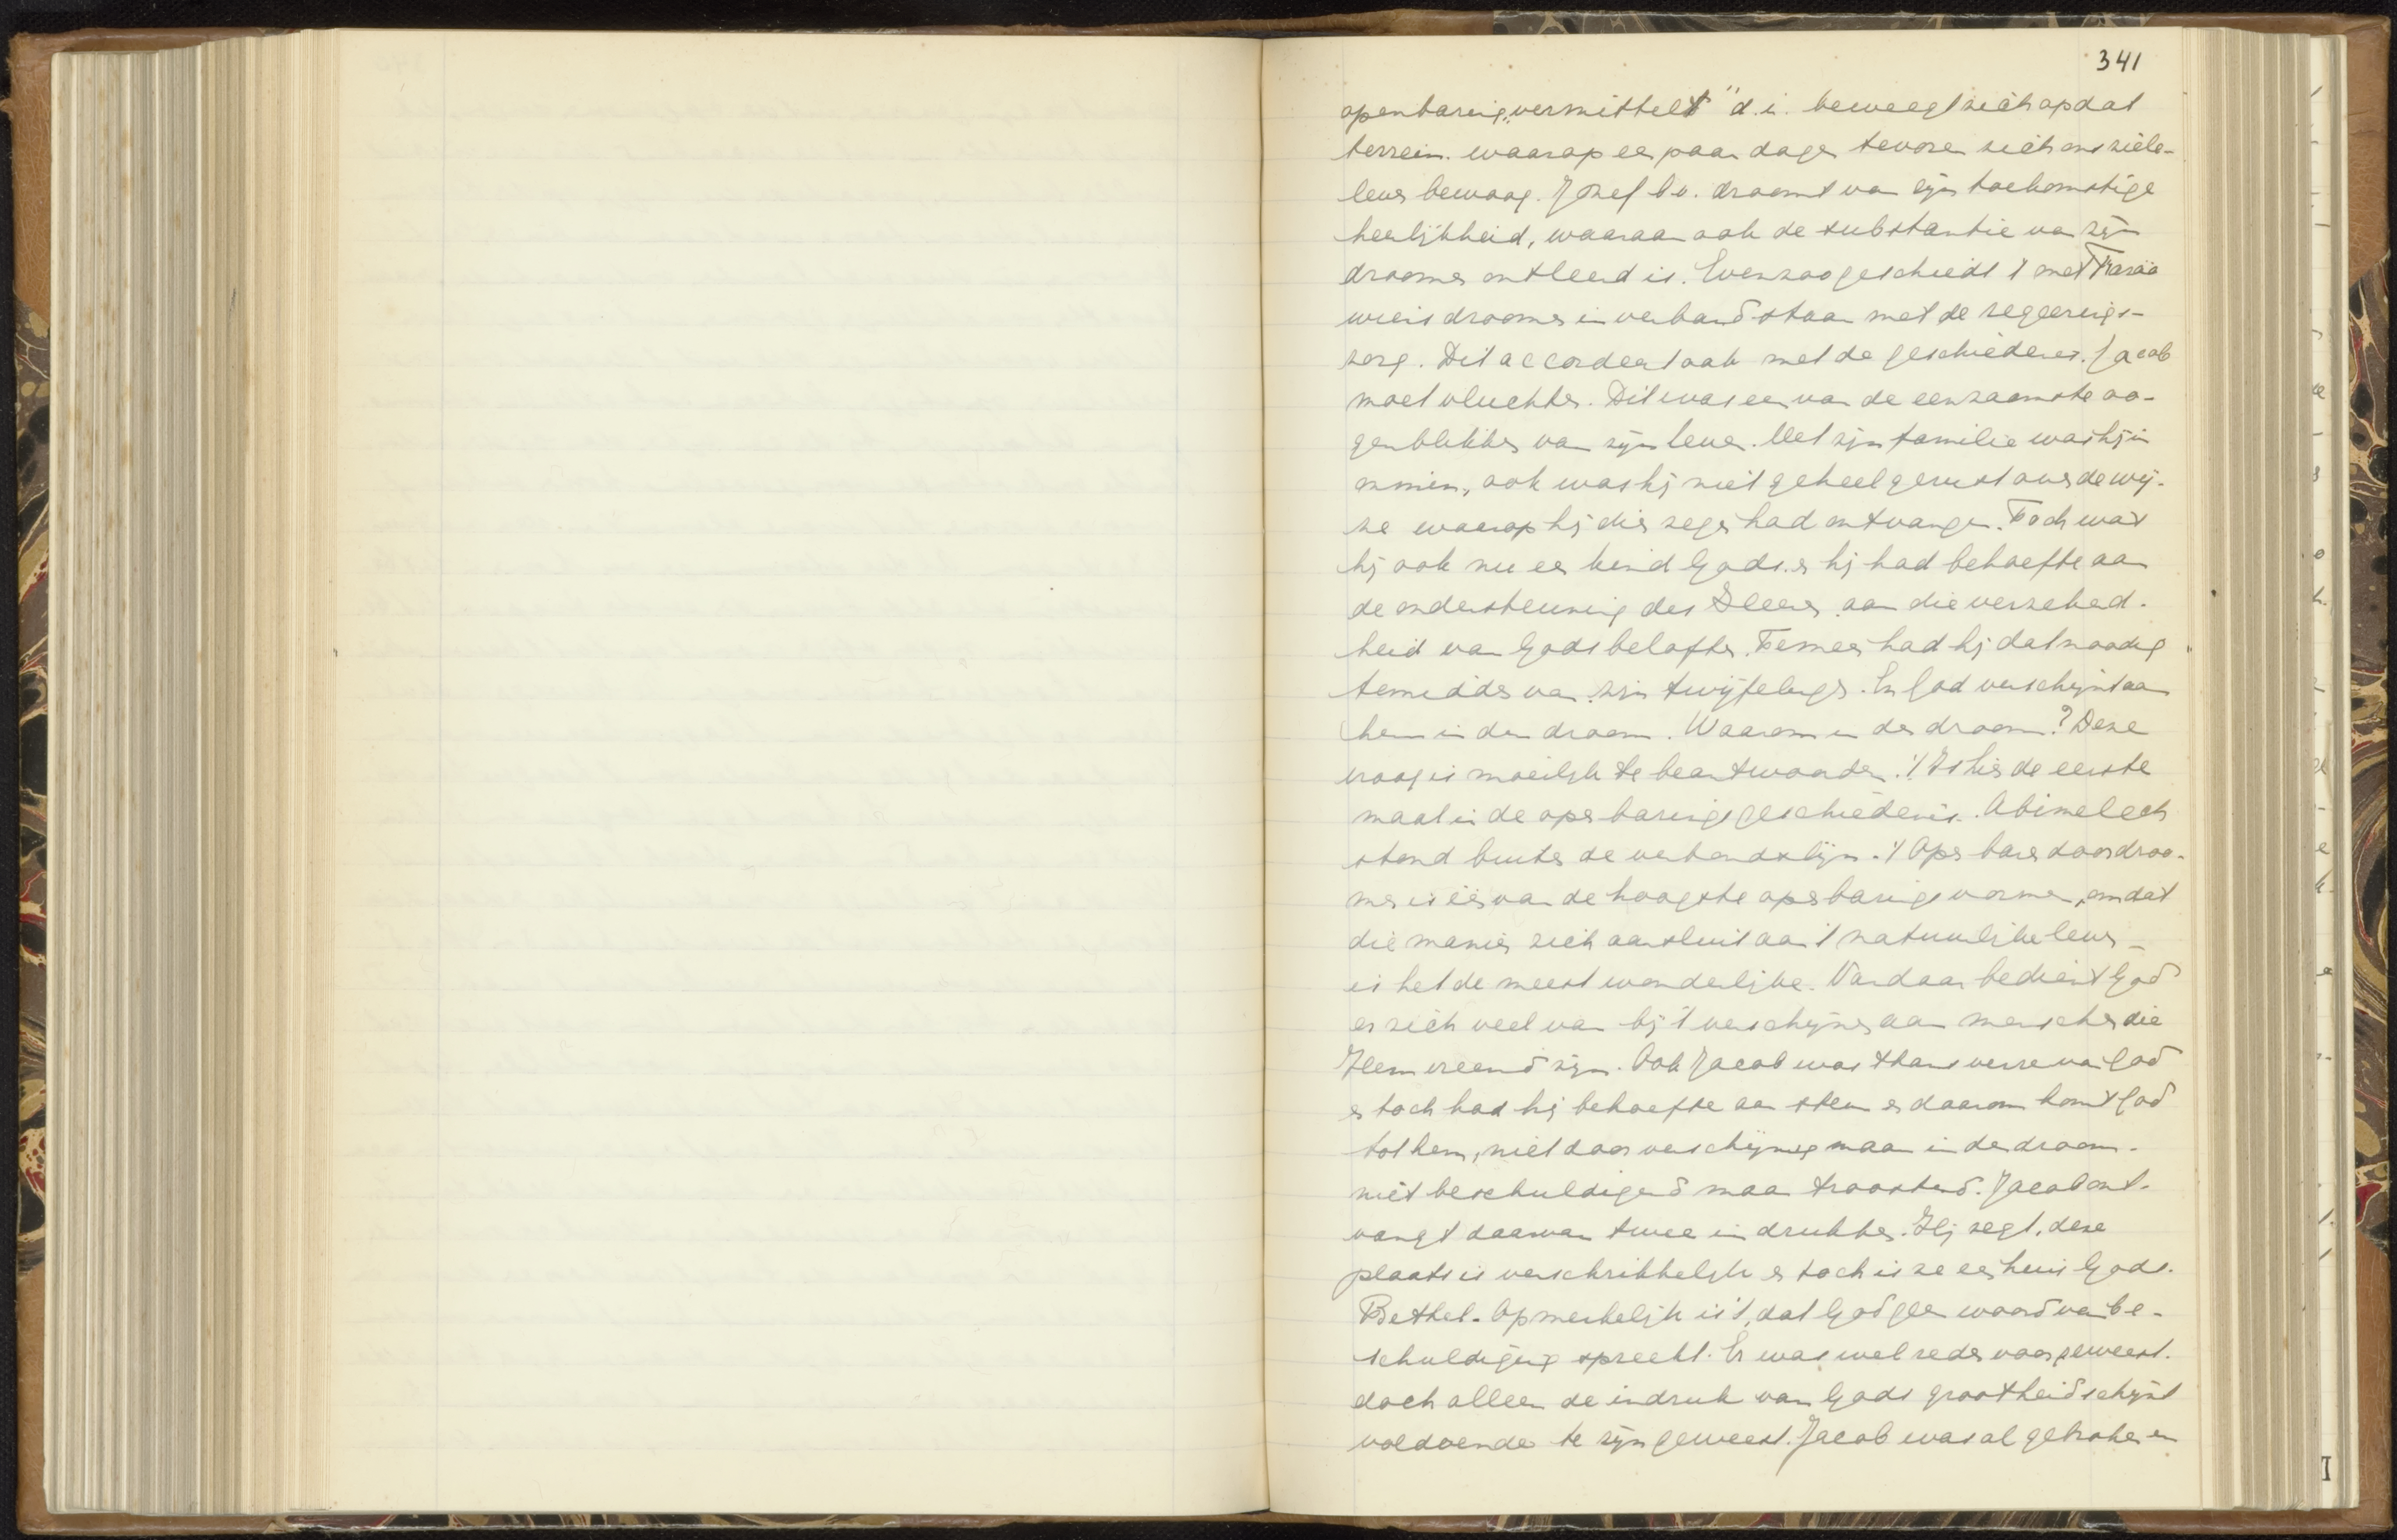 341
openbaring „vermittelt" d.i. beweegt zich op dat
terrein. waarop een paar dagen tevoren zich ons ziele-
leven bewoog. Jozef b.v. droomt van zijn toekomstige
heerlijkheid, waaraan ook de substantie van zijn
droomen ontleend is. Evenzoo geschiedt 't met Faraö
wiens droomen in verband staan met de regeerings-
zorg. Dit accordeert ook met de geschiedenis. Jacob
moet vluchten. Dit was een van de eenzaamste oo-
genblikken van zijn leven. Met zijn familie was hij in
onmin, ook was hij niet geheel gerust over de wij-
ze waarop hij die zegen had ontvangen. Toch was
hij ook nu een kind Gods. en hij had behoefte aan
de ondersteuning des Heeren aan die verzekerd-
heid van Gods beloften. Temeer had hij dat noodig
temidden van zijn twijfelingen. En God verschijnt aan
hem in den droom. Waarom in den droom? Deze
vraag is moeilijk te beantwoorden. 't Is hier de eerste
maal in de openbaringsgeschiedenis. Abimelech
stond buiten de verbondslijn. 't Openbaren door droo-
men is één van de hoogste openbaringsvormen, omdat
die manier zich aansluit aan 't natuurlijke leven -
is het de meest wonderlijke. Vandaar bedient God
er zich veel van bij 't verschijnen aan menschen die
Hem vreemd zijn. Ook Jacob was thans verre van God
en toch had hij behoefte aan steun en daarom komt God
tot hem, niet door verschijning maar in den droom.
niet beschuldigend maar troostend. Jacob ont-
vangt daarvan twee indrukken. Hij zegt, deze
plaats is verschrikkelijk en toch is ze een huis Gods.
Bethel. Opmerkelijk is 't, dat God geen woord van be-
schuldiging spreekt. Er was wel reden voor geweest.
doch alleen de indruk van Gods grootheid schijnt
voldoende te zijn geweest. Jacob was al gebroken en